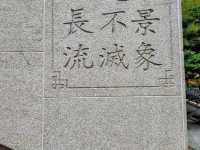 景象
不滅
長流